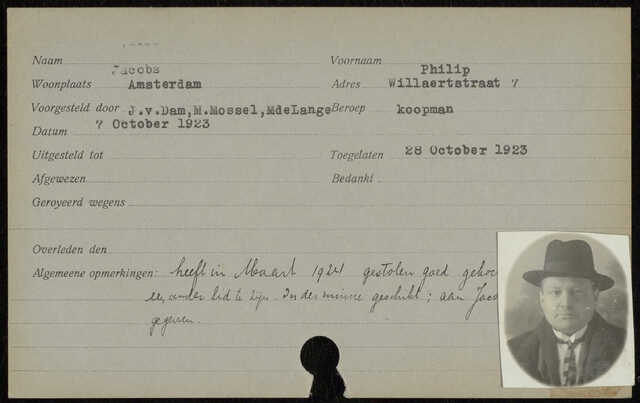 Naam Jacobs Voornaam Philip
Woonplaats Amsterdam Adres Willaertstraat 7
Voorgesteld door J.v.Dam,M.Mossel,MdeLange Beroep koopman
Datum 7 October 1923
Uitgesteld tot Toegelaten 28 October 1923
Afgewezen Bedankt
Geroyeerd wegens
Overleden den
Algemeene opmerkingen: heeft in Maart 1924 gestolen goed
ander lid te zijn. In der minne geschikt; aan Jaco
gegeven.